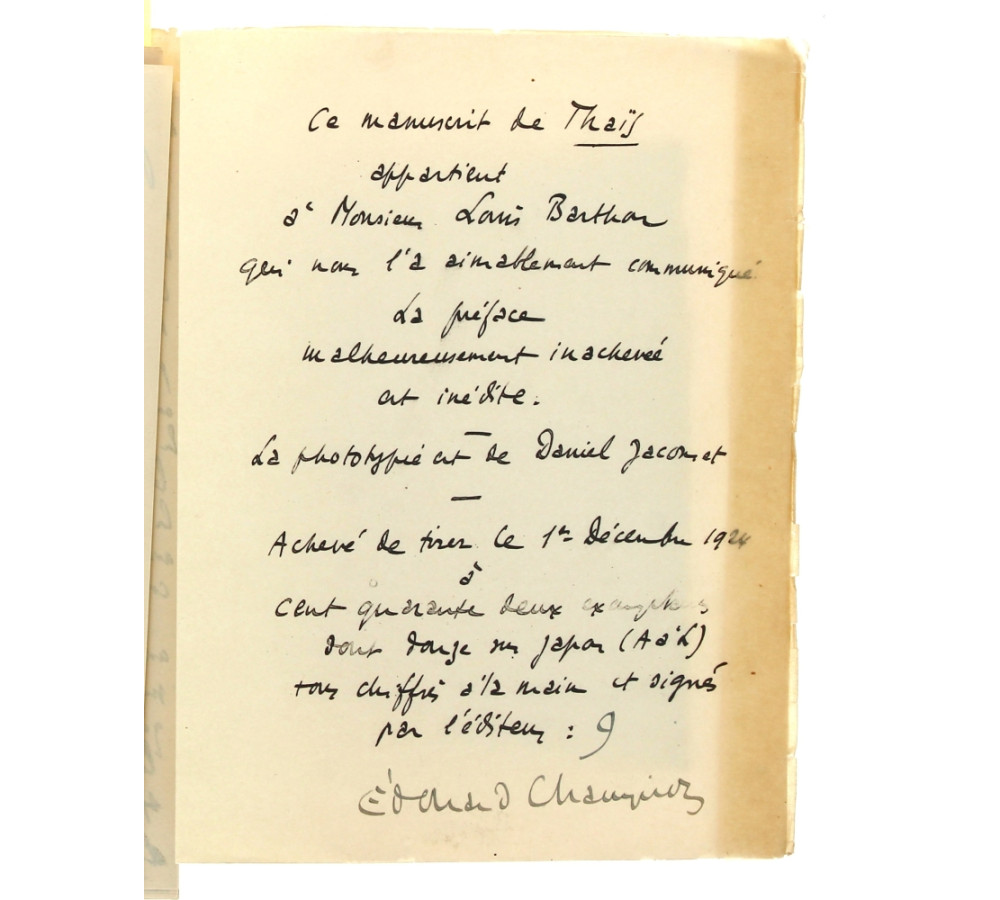 Ce manuscrit de Thaïs
appartient
à Monsieur Louis Barthou
qui nous l'a aimablement communiqué
La préface
malheureusement inachevée
est inédite.
—
La phototypie est de Daniel Jacomet
—
Achevé de tirer le 1er Décembre 1924
à
cent quarante deux exemplaires
dont douze sur Japon (A à L)
tous chiffrés à la main et signés
par l'éditeur : 9
Édouard Champion